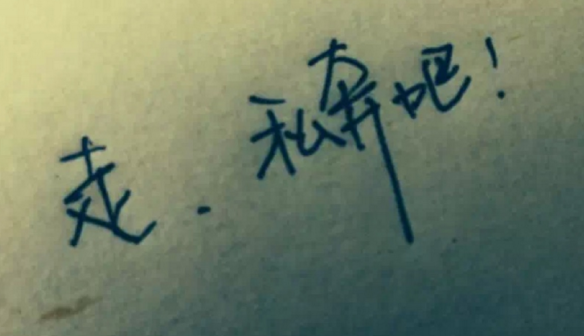 走.私奔吧!